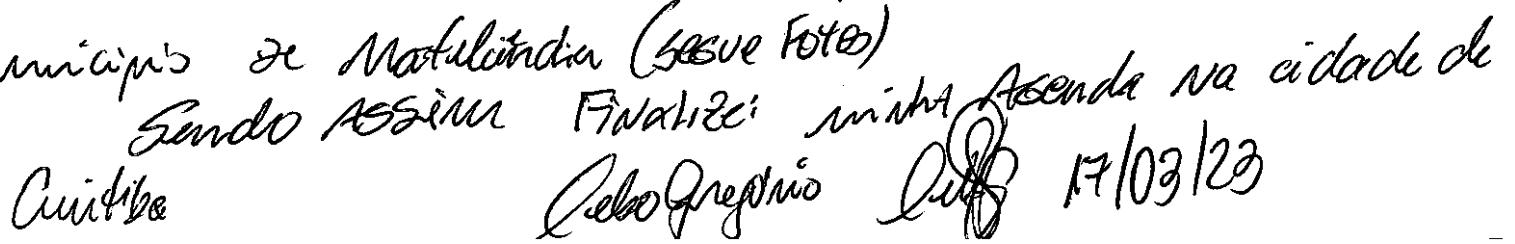 município de Matelândia (segue Fotos)
Sendo Assim Finalizei minha Agenda na cidade de
Curitiba Celso Gregório 17/03/23